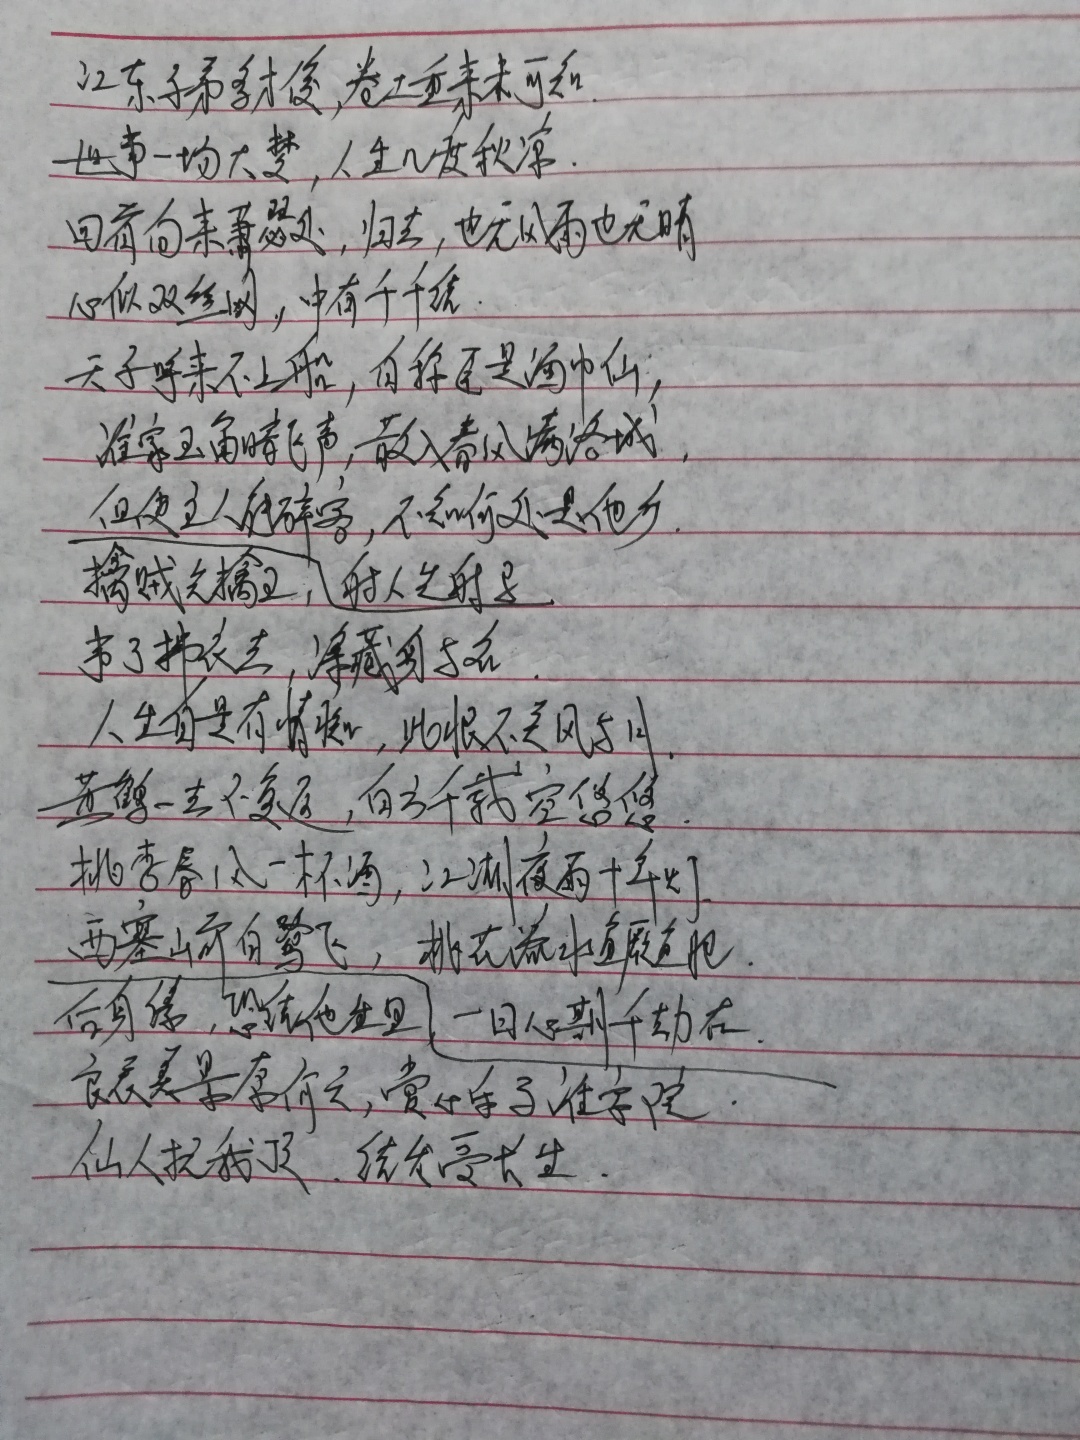 江东子弟多才俊，卷土重来未可知．
世事一场大梦，人生几度秋凉．
回首向来萧瑟处，归去，也无风雨也无晴
心似双丝网，中有千千结．
天子呼来不上船，自称臣是酒中仙，
谁家玉笛暗飞声，散入春风满洛城，
但使主人能醉客，不知何处是他乡．
擒贼先擒王，射人先射马．
事了拂衣去，深藏身与名．
人生自是有情痴，此恨不关风与月．
黄鹤一去不复返，白云千载空悠悠．
桃李春风一杯酒，江湖夜雨十年灯．
西塞山前白鹭飞，桃花流水鳜鱼肥．
后身缘，恐结他生里 一日心期千劫在．
良辰美景奈何天，赏心乐事谁家院．
仙人抚我顶．结发受长生．